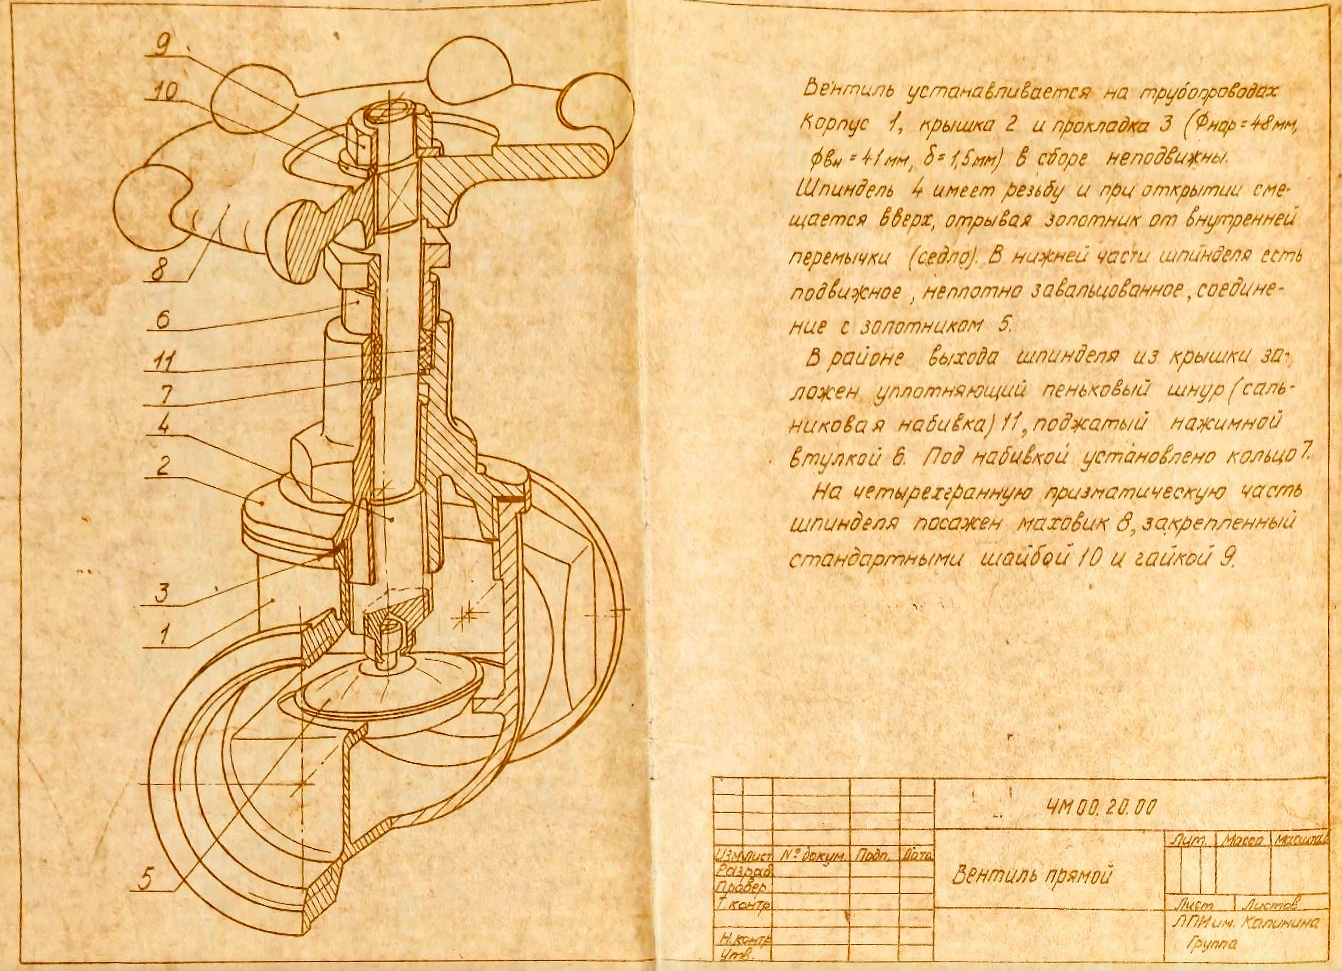 9
10
8
6
11
7
4
2
3
1
5
Вентиль устанавливается на трубопроводах
Корпус 1, крышка 2 и прокладка 3 (Фнар=48мм,
фвн=41мм, δ=1,5мм) в сборе неподвижны.
Шпиндель 4 имеет резьбу и при открытии сме-
щается вверх, отрывая золотник от внутренней
перемычки (седло). В нижней части шпинделя есть
подвижное, неплотно завальцованное, соедине-
ние с золотником 5.
В районе выхода шпинделя из крышки за-
ложен уплотняющий пеньковый шнур (саль-
никовая набивка) 11, поджатый нажимной
втулкой 6. Под набивкой установлено кольцо 7.
На четырехгранную призматическую часть
шпинделя посажен маховик 8, закрепленный
стандартными шайбой 10 и гайкой 9.
ЧМ00.20.00
Лит. Масса Масштаб
Изм Лист № докум. Подп. Дата
Разраб.
Вентиль прямой
Провер.
Т. контр
Лист Листов
ЛПИ им. Калинина
Группа
Н. контр
Утв.